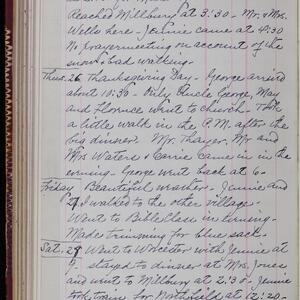 Reached Millbury at 3:30 - Mr. & Mrs.
Wells here - Jennie came at 4:30
No prayermeeting on account of the
snow & bad walking -
Thurs. 26 Thanksgiving Day - George arrived
about 10:30 - Only Uncle George, May
and Florence went to church - Took
a little walk in the P.M. after the
big dinner. Mr. Thayer, Mr. and
Mrs Waters & Carrie came in in the
evening - George went back at 6 -
Friday Beautiful weather - Jennie and
27 I walked to the other village -
Went to Bible Class in evening -
Made trimming for blue sack -
Sat. Went to Worcester with Jennie at
9 - stayed to dinner at Mrs. Jones
and went to Millbury at 2:30 - Jennie
took train for Northfield at 12:20 -